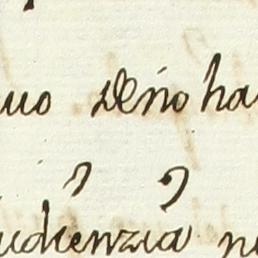 uo deño ha
udienzia n